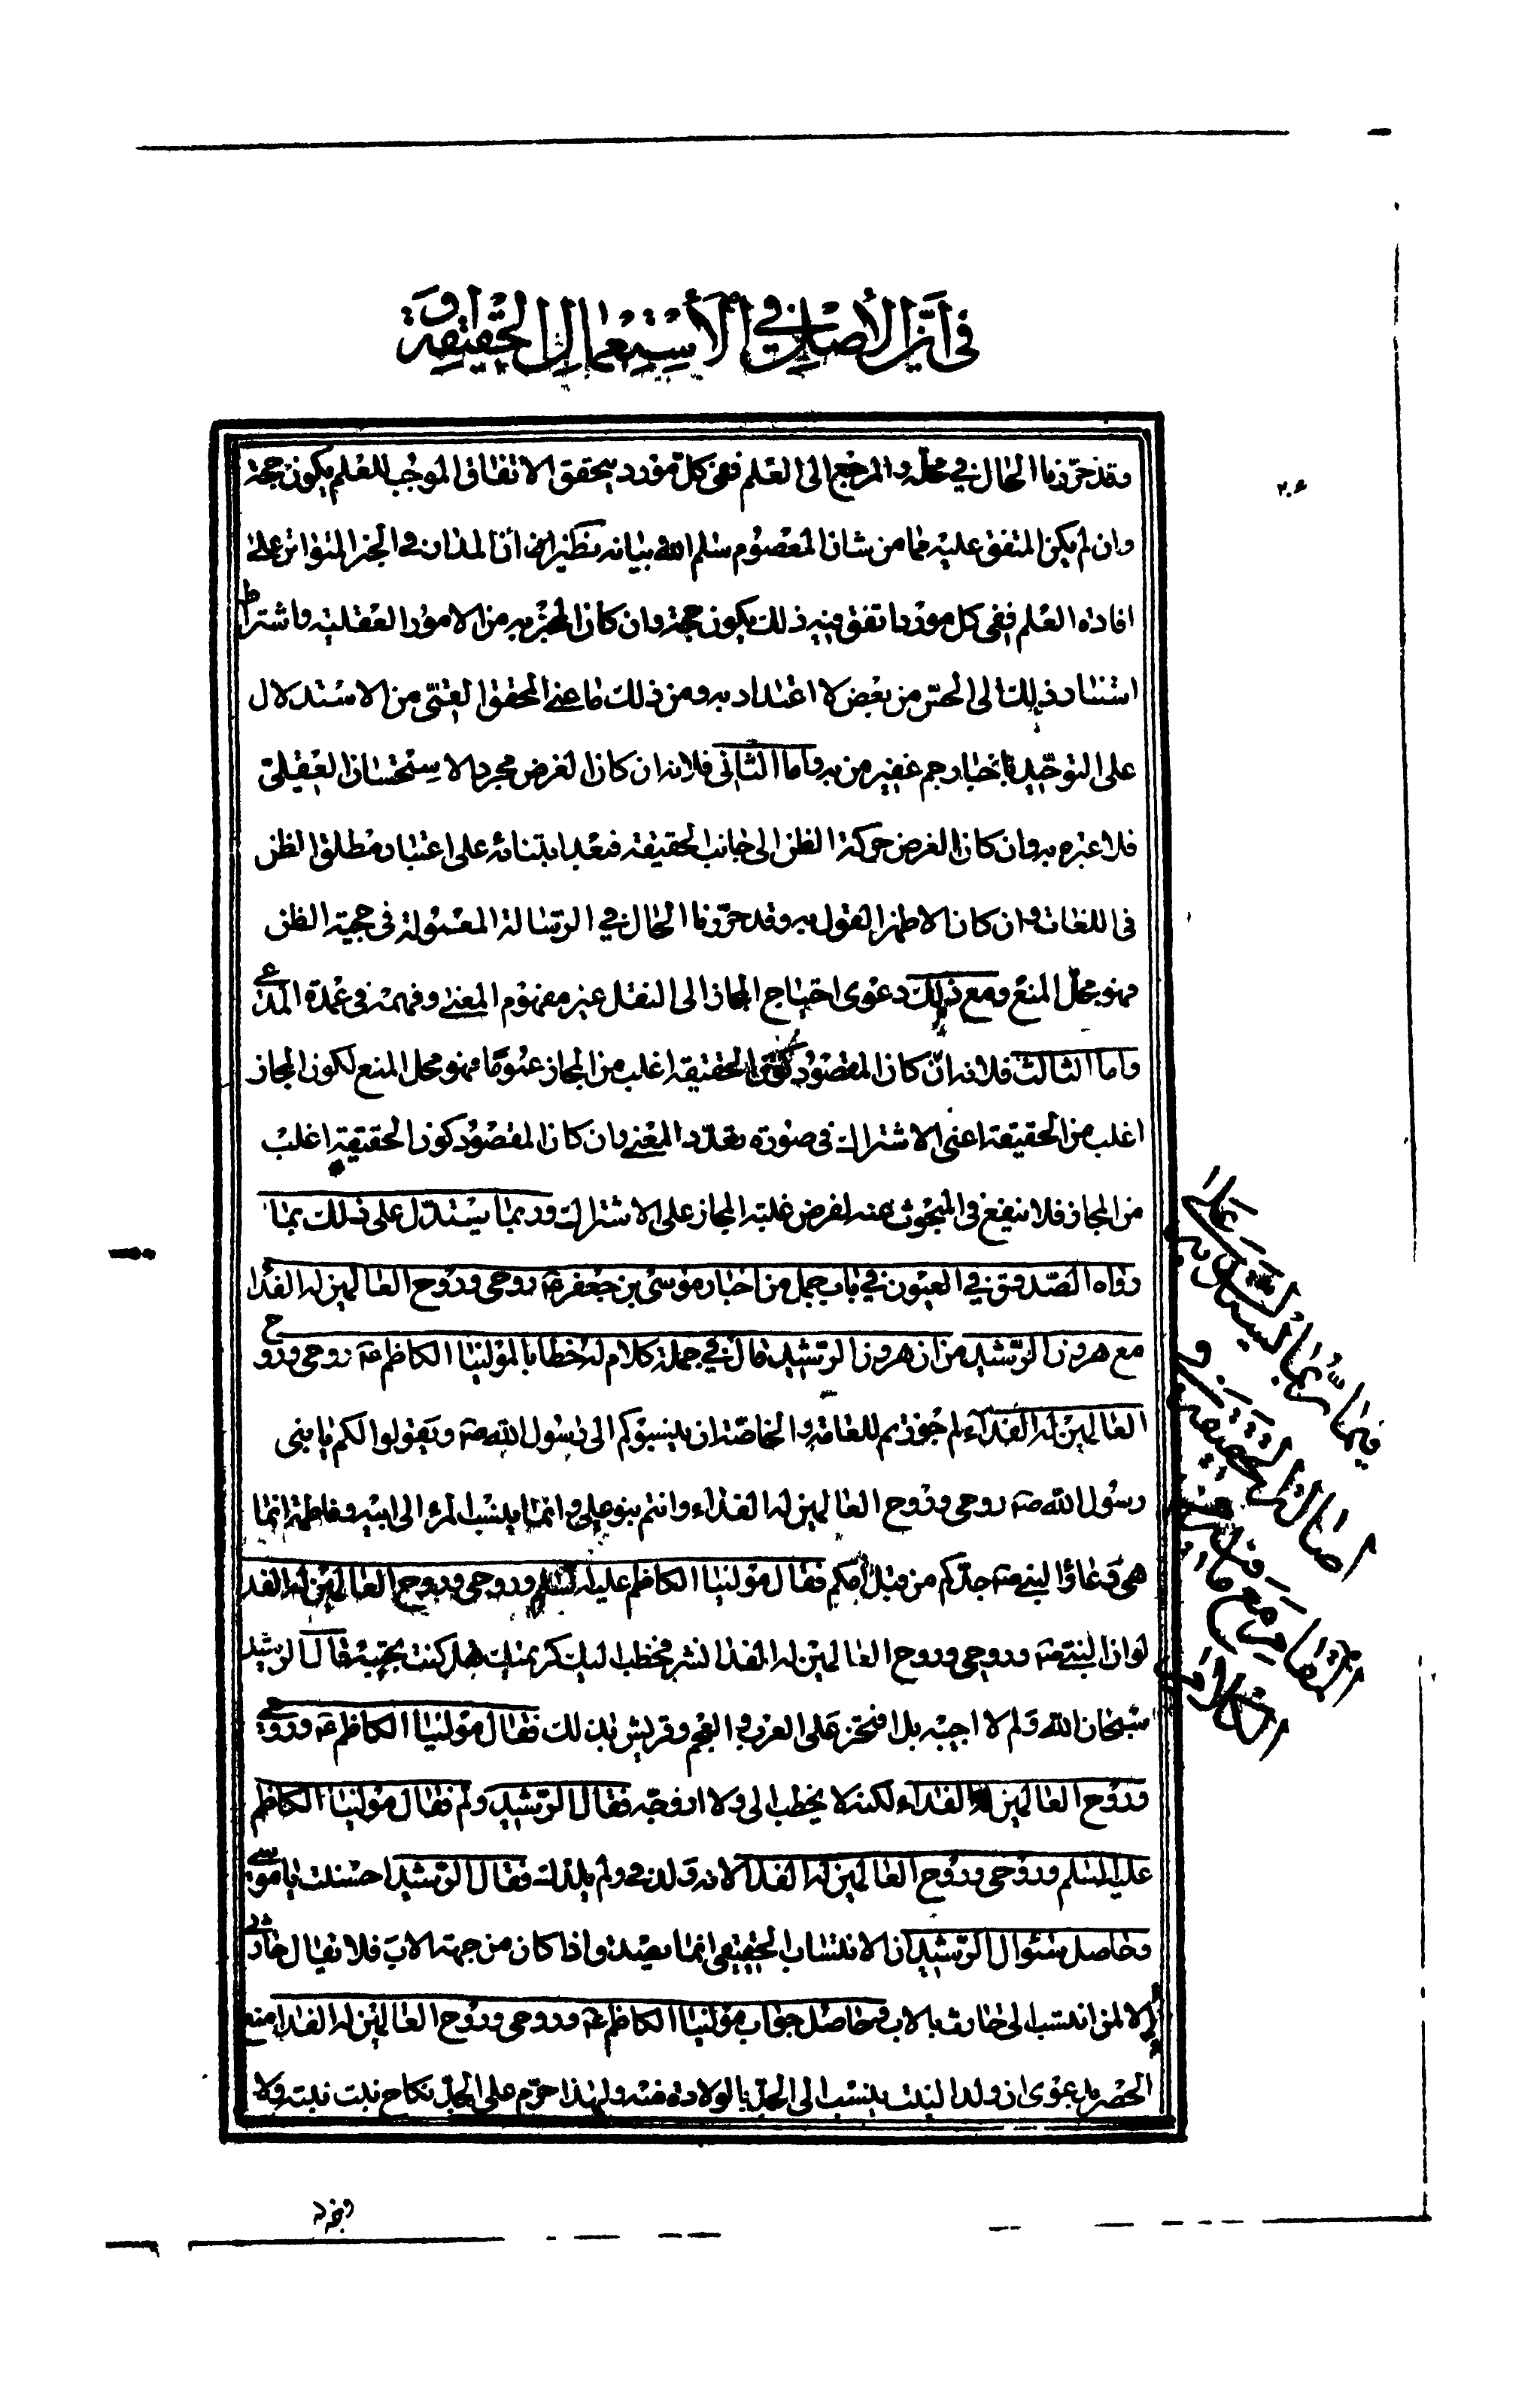 في ان الاصل في الاستعمال الحقيقة
٢٠٦
وقد حررنا الحال في محله والمرجع الى العلم ففي كل مورد يتحقق الاتفاق الموجب للعلم يكون حجة
وان لم يكن المتفق عليه مما من شان المعصوم سلم الله بيانه نظير ان المدار في الخبر المتواتر على
افادة العلم ففي كل مورد اتفق فيه ذلك يكون حجة وان كان المخبر به من الامور العقلية واشتراط
استناد ذلك الى الحس من بعض لا اعتداد به ومن ذلك ما عن المحقق القمي من الاستدلال
على التوحيد باخبار جم غفير من به واما الثاني فلانه ان كان الغرض مجرد الاستحسان العقلي
فلا عبرة به وان كان الغرض حركة الظن الى جانب الحقيقة فبعد ابتنائه على اعتبار مطلق الظن
في اللغات وان كان الاظهر القول به وقد حررنا الحال في الرسالة المعمولة في حجية الظن
فهو محل المنع ومع ذلك دعوى احتياج المجاز الى النقل غير مفهوم المعنى وفهمه في عهدة المدعي
واما الثالث فلانه ان كان المقصود كون الحقيقة اغلب من المجاز عموما فهو محل المنع لكون المجاز
اغلب من الحقيقة اعني الاشتراك في صورة تعدد المعنى وان كان المقصود كون الحقيقة اغلب
من المجاز فلا ينفع في المبحوث عنه لفرض غلبة المجاز على الاشتراك وربما يستدل على ذلك بما
رواه الصدوق في العيون في باب جمل من اخبار موسى بن جعفر ع روحي وروح العالمين له الفدا
مع هرون الرشيد من ان هرون الرشيد قال في جملة كلام له خطابا لمولينا الكاظم ع روحي وروح
العالمين له الفداء لم جوزتم للعامة والخاصة ان ينسبوكم الى رسول الله ص ويقولوا لكم يا بني
رسول الله ص روحي وروح العالمين له الفداء وانتم بنو علي وانما ينسب المرء الى ابيه وفاطمة انما
هي وعاؤ النبي ص جدكم من قبل امكم فقال مولينا الكاظم عليه السلم وروحي وروح العالمين له الفدا
لو ان النبي ص وروحي وروح العالمين له الفدا نشر فخطب اليك كريمتك هل كنت تجيبه فقال الرشيد
سبحان الله ولم لا اجيبه بل افتخر على العرب والعجم وقريش بذلك فقال مولينا الكاظم ع وروحي
وروح العالمين له الفداء لكنه لا يخطب الي ولا ازوجه فقال الرشيد ولم فقال مولينا الكاظم
عليه السلم وروحي وروح العالمين له الفدا لانه ولدني ولم يلدك فقال الرشيد احسنت يا موسى
وحاصل سئوال الرشيد ان الانتساب الحقيقي انما يصدق اذا كان من جهة الاب فلا يقال حارثي
الا لمن انتسب الى حارث بالاب وحاصل جواب مولينا الكاظم ع وروحي وروح العالمين له الفدا منع
الحصر بدعوى ان ولد البنت ينسب الى الجد بالولادة منه ولهذا حرم على الجد نكاح بنت بنته ولا
فيما ربما يستدل به على
اصالة الحقيقة و
الكلام